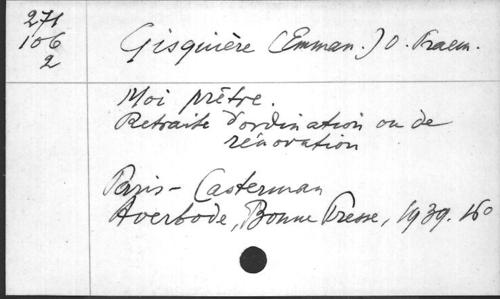 271
106
2
Gisquière (Emman.) O. Praem.
Moi prêtre.
Retraite d'ordination ou de
rénovation
Paris - Casterman
Averbode, Bonne Presse, 1939. 16°